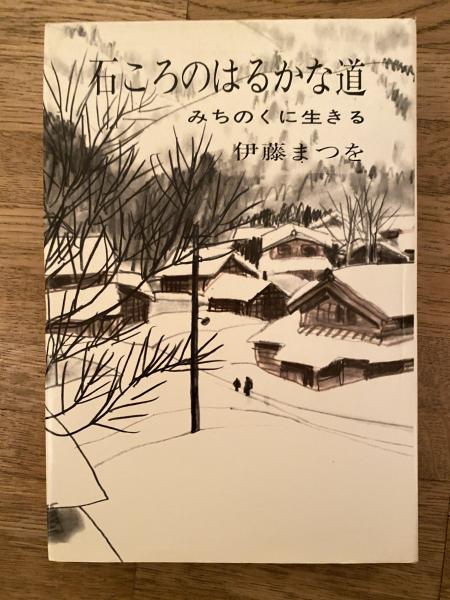 石ころのはるかな道
みちのくに生きる
伊藤まつを